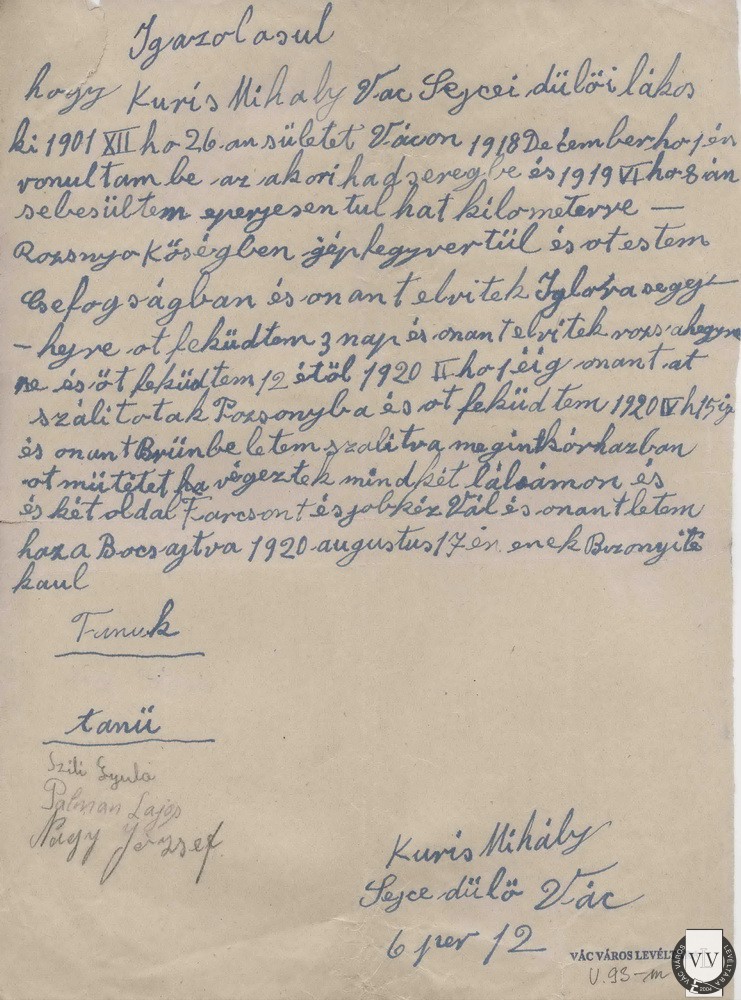 Igazolasul
hogy Kuris Mihaly Vac Sejcei dülöi lákos
ki 1901 XII ho 26-an sületet Vácon 1918 December ho 1 én
vonultam be az akori hadzseregbe és 1919 VI ho 8 án
sebesültem eperjesen tul hat kilometerre —
Rozsnyo Köségben gépfegyvertül és ot estem
Csefogságban és onant elvitek Iglóra segej-
- hejre ot feküdtem 3 nap és onant elvitek rozsahegyre
ne és öt feküdtem 12 étöl 1920 II ho 1 éig onant at
szálitotak Pozsonyba és ot feküdtem 1920 IV h 15 ig
és onant Brünbe letem szalitva megint kórhazban
ot mütétet ha végeztek mindkét lábámon és
és két oldal Farcsont és jobkéz Vál és onant letem
haza Bocsajtva 1920 augustus 17 én enek Bizonyité
kaul
Tanuk
tanü
Szili Gyula
Palman Lajos
Nagy József
Kuris Mihály
Sejce dülö Vác
6 per 12
VÁC VÁROS LEVÉLT
V. 93-m
VÁC VÁROS LEVÉLTÁRA
VIV
2004